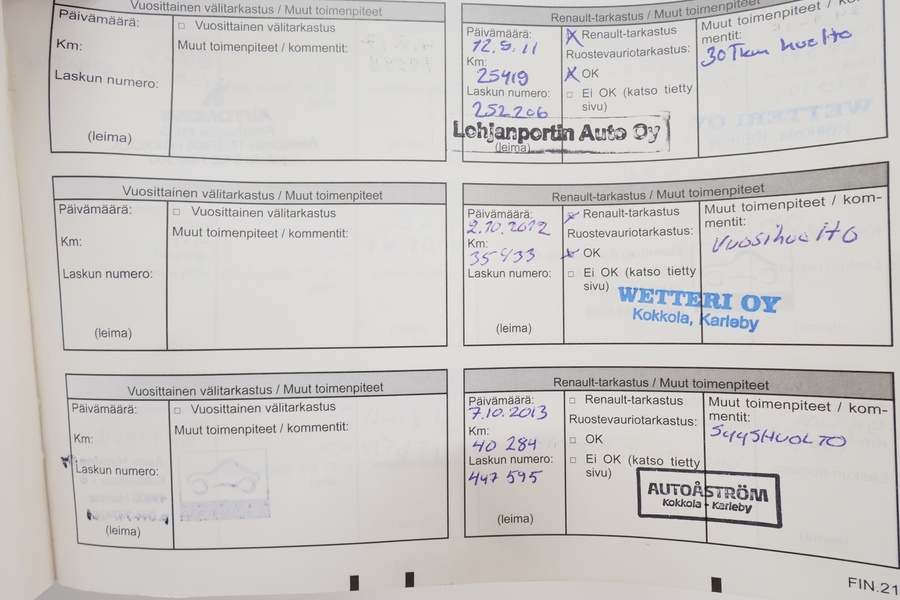 Vuosittainen välitarkastus / Muut toimenpiteet
Päivämäärä:
□ Vuosittainen välitarkastus
Km:
Muut toimenpiteet / kommentit:
Laskun numero:
(leima)
Renault-tarkastus / Muut toimenpiteet
Päivämäärä:
12.9.11
Km:
25419
Laskun numero:
252206
(leima)
Renault-tarkastus
Ruostevauriotarkastus:
OK
□ Ei OK (katso tietty
sivu)
Muut toimenpiteet / kom-
mentit:
30Tkm huolto
Lohjanportin Auto Oy
Vuosittainen välitarkastus / Muut toimenpiteet
Päivämäärä:
□ Vuosittainen välitarkastus
Km:
Muut toimenpiteet / kommentit:
Laskun numero:
(leima)
Renault-tarkastus / Muut toimenpiteet
Päivämäärä:
2.10.2012
Km:
35433
Laskun numero:
(leima)
Renault-tarkastus
Ruostevauriotarkastus:
OK
□ Ei OK (katso tietty
sivu)
Muut toimenpiteet / kom-
mentit:
Vuosihuolto
WETTERI OY
Kokkola, Karleby
Vuosittainen välitarkastus / Muut toimenpiteet
Päivämäärä:
□ Vuosittainen välitarkastus
Km:
Muut toimenpiteet / kommentit:
Laskun numero:
(leima)
Renault-tarkastus / Muut toimenpiteet
Päivämäärä:
7.10.2013
Km:
40 284
Laskun numero:
447 595
(leima)
□ Renault-tarkastus
Ruostevauriotarkastus:
□ OK
□ Ei OK (katso tietty
sivu)
Muut toimenpiteet / kom-
mentit:
SYYSHUOLTO
AUTOÅSTRÖM
Kokkola - Karleby
FIN.21